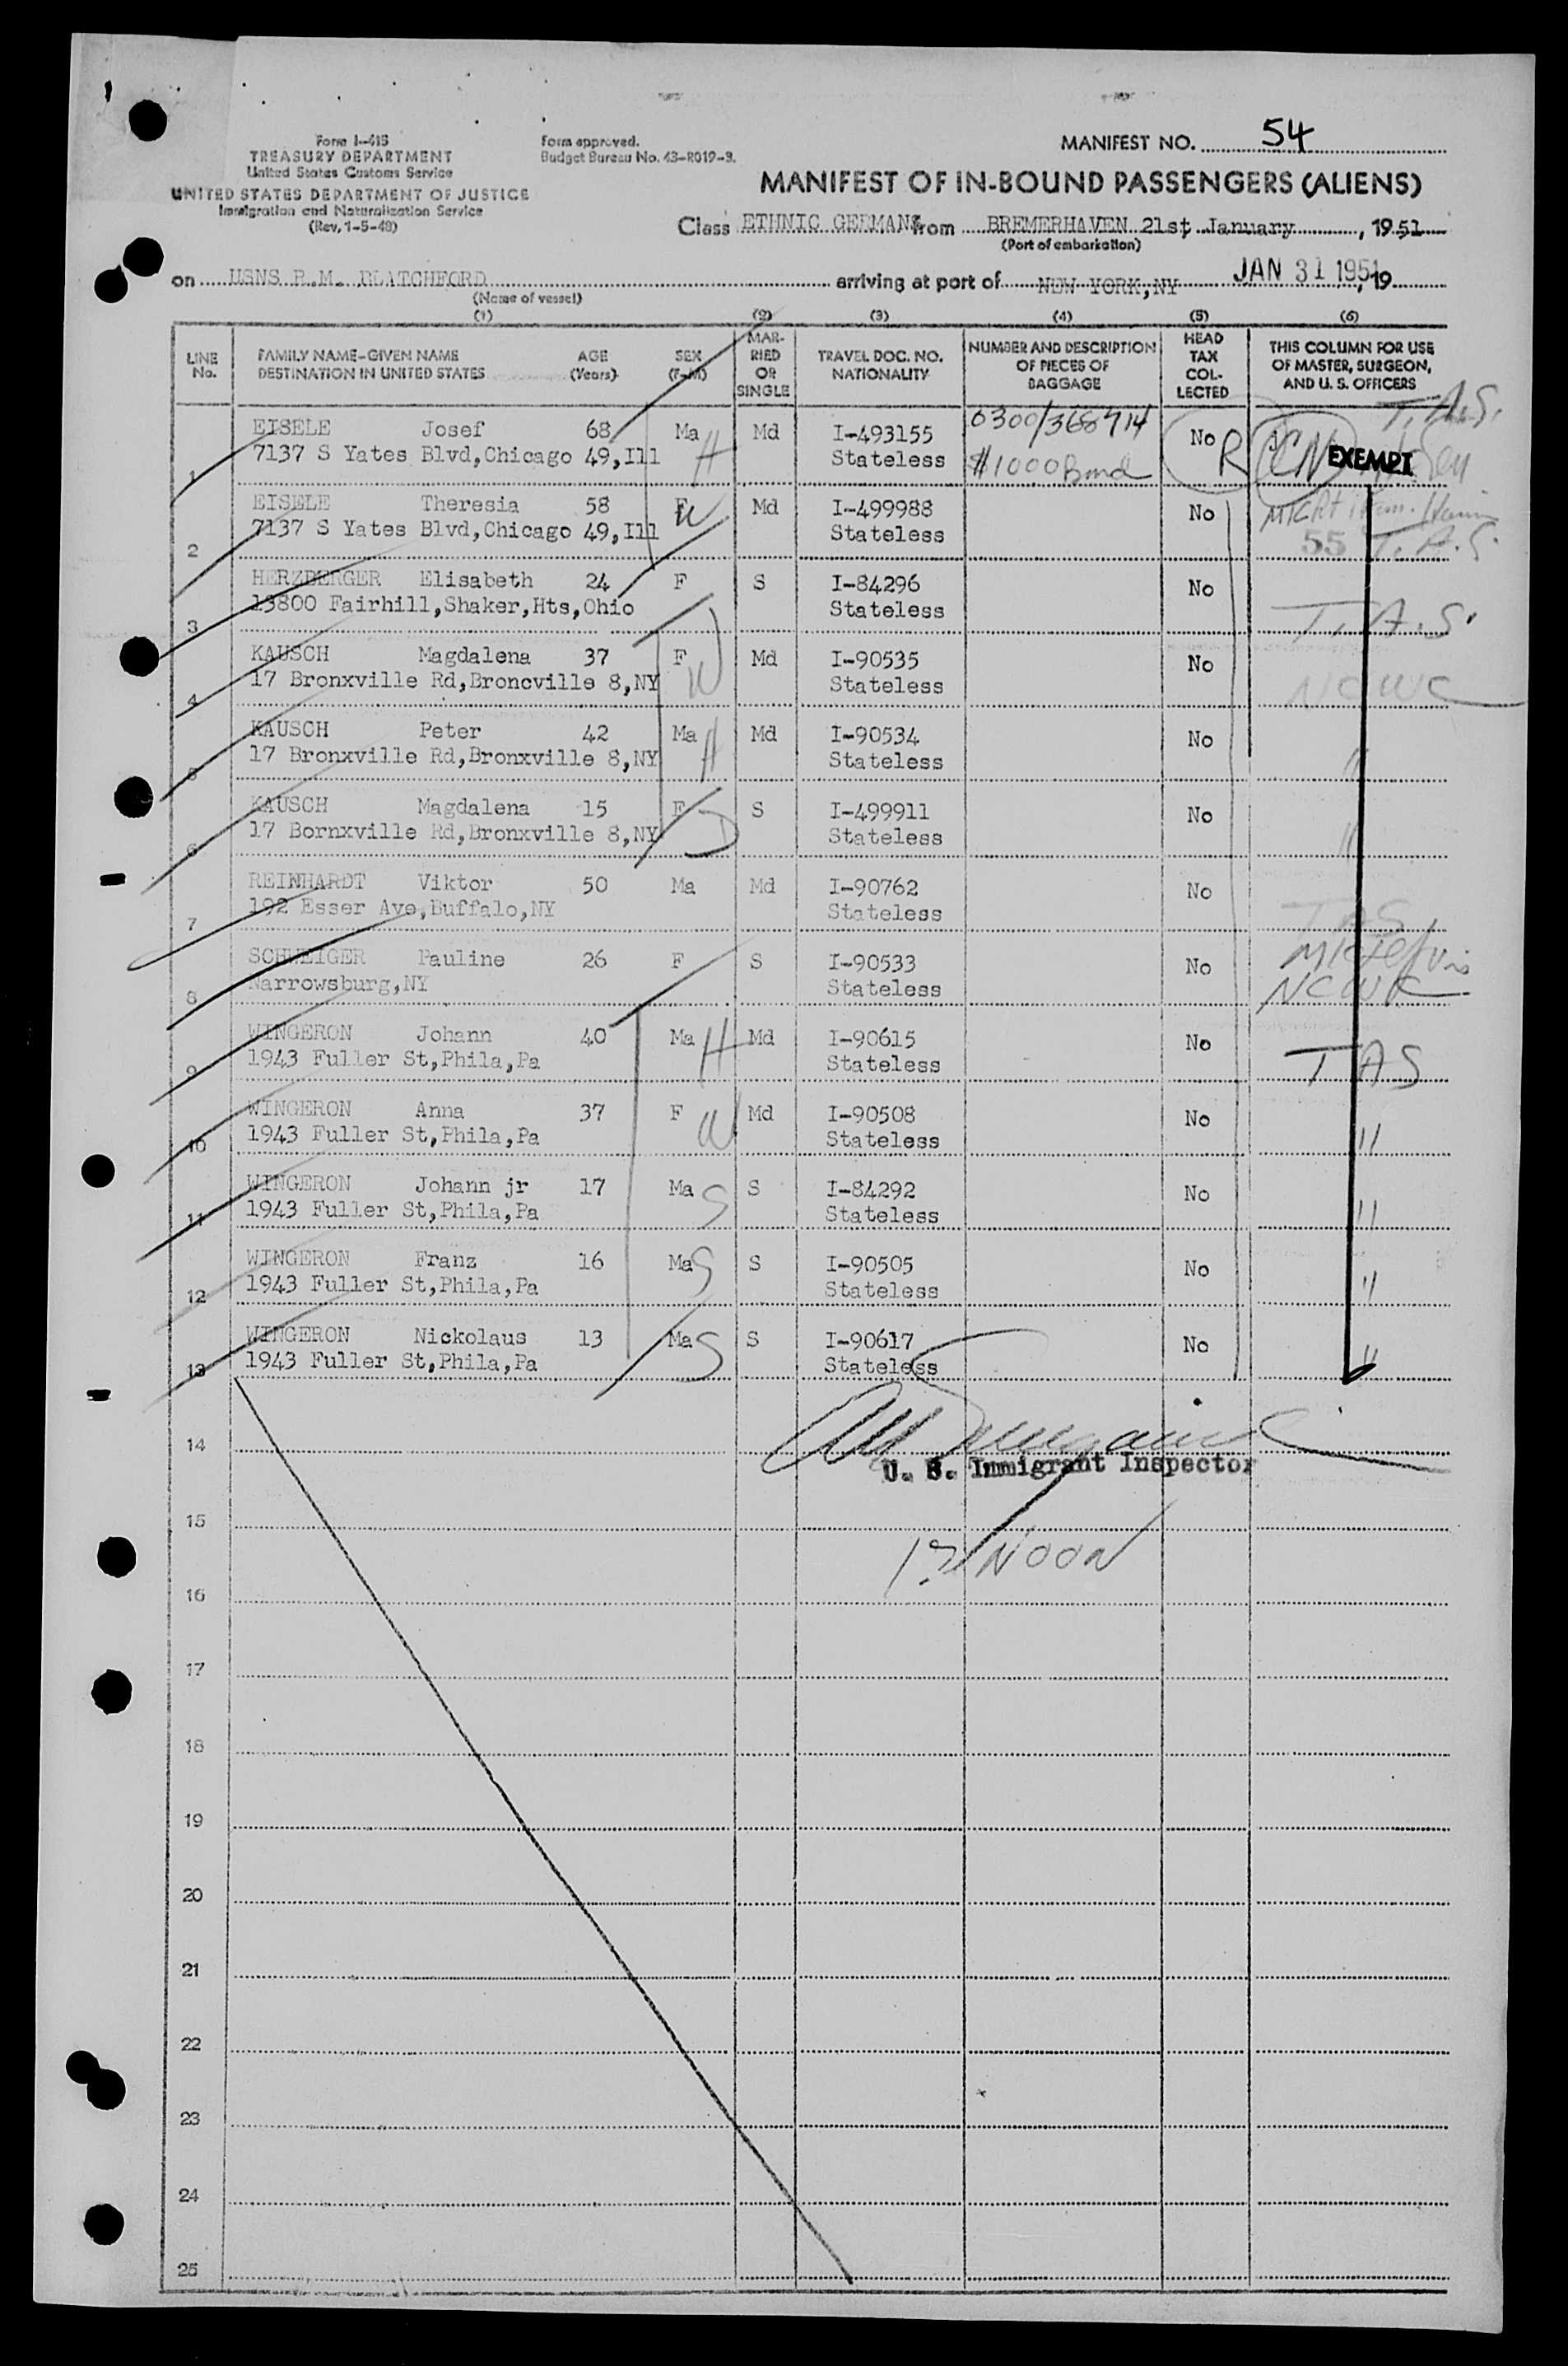 Form I-415
TREASURY DEPARTMENT
United States Customs Service
UNITED STATES DEPARTMENT OF JUSTICE
Immigration and Naturalization Service
(Rev. 1-5-49)
Form approved.
Budget Bureau No. 43-R019-3.
MANIFEST NO. 54
MANIFEST OF IN-BOUND PASSENGERS (ALIENS)
Class ETHNIC GERMANS from BREMERHAVEN 21st January, 1951
(Port of embarkation)
on USNS R.M. BLATCHFORD arriving at port of NEW YORK,NY JAN 31 1951, 19
(Name of vessel)
(1) (2) (3) (4) (5) (6)
LINE No. FAMILY NAME-GIVEN NAME DESTINATION IN UNITED STATES AGE (Years) SEX (F-M) MARRIED OR SINGLE TRAVEL DOC. NO. NATIONALITY NUMBER AND DESCRIPTION OF PIECES OF BAGGAGE HEAD TAX COLLECTED THIS COLUMN FOR USE OF MASTER, SURGEON, AND U. S. OFFICERS
T.A.S.
EISELE Josef 68 Ma H Md I-493155 0300/368714 No R EXEMPT
1 7137 S Yates Blvd,Chicago 49,Ill Stateless $1000 Bond
EISELE Theresia 58 F W Md I-499988 No
2 7137 S Yates Blvd,Chicago 49,Ill Stateless 55 T.A.S.
HERZBERGER Elisabeth 24 F S I-84296 No
3 13800 Fairhill,Shaker,Hts,Ohio Stateless T.A.S.
KAUSCH Magdalena 37 F W Md I-90535 No
4 17 Bronxville Rd,Broncville 8,NY Stateless NCWC
KAUSCH Peter 42 Ma H Md I-90534 No
5 17 Bronxville Rd,Bronxville 8,NY Stateless "
KAUSCH Magdalena 15 F D S I-499911 No
6 17 Bornxville Rd,Bronxville 8,NY Stateless "
REINHARDT Viktor 50 Ma Md I-90762 No
7 192 Esser Ave,Buffalo,NY Stateless TAS
SCHWEIGER Pauline 26 F S I-90533 No
8 Narrowsburg,NY Stateless NCWC
WINGERON Johann 40 Ma H Md I-90615 No
9 1943 Fuller St,Phila,Pa Stateless TAS
WINGERON Anna 37 F W Md I-90508 No
10 1943 Fuller St,Phila,Pa Stateless "
WINGERON Johann jr 17 Ma S S I-84292 No
11 1943 Fuller St,Phila,Pa Stateless "
WINGERON Franz 16 Ma S S I-90505 No
12 1943 Fuller St,Phila,Pa Stateless "
WINGERON Nickolaus 13 Ma S S I-90617 No
13 1943 Fuller St,Phila,Pa Stateless "
14
U. S. Immigrant Inspector
15
12 NOON
16
17
18
19
20
21
22
23
24
25